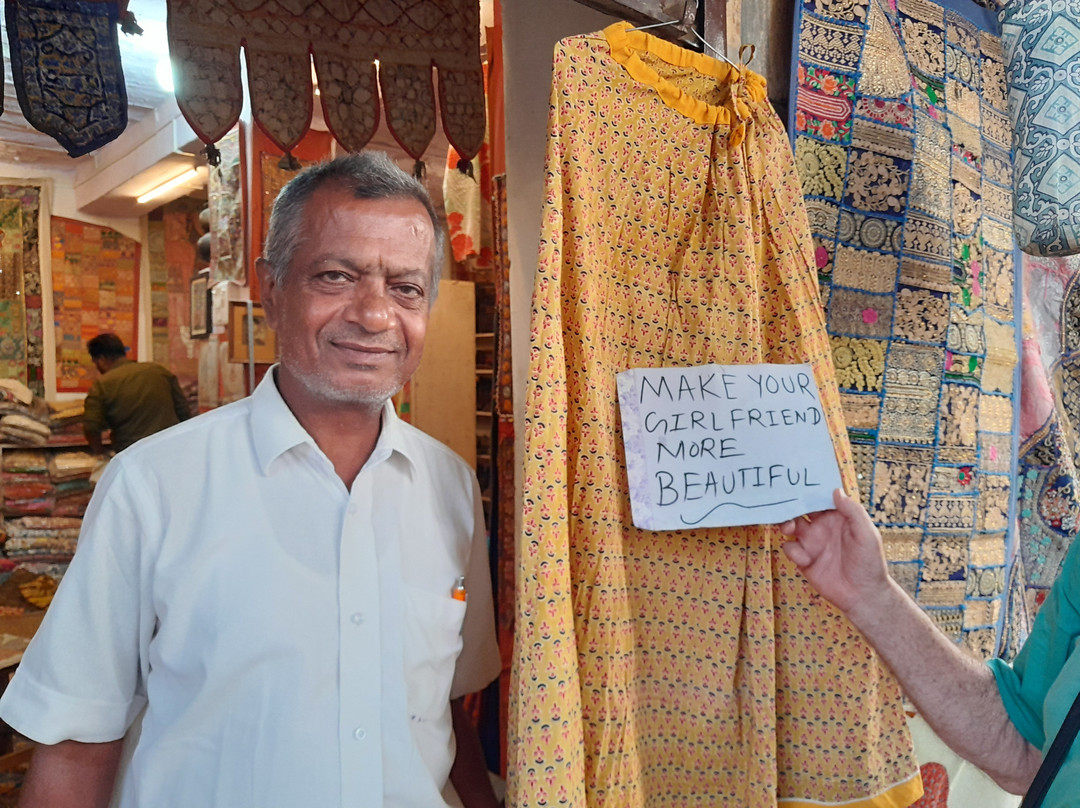 MAKE YOUR
GIRLFRIEND
MORE
BEAUTIFUL